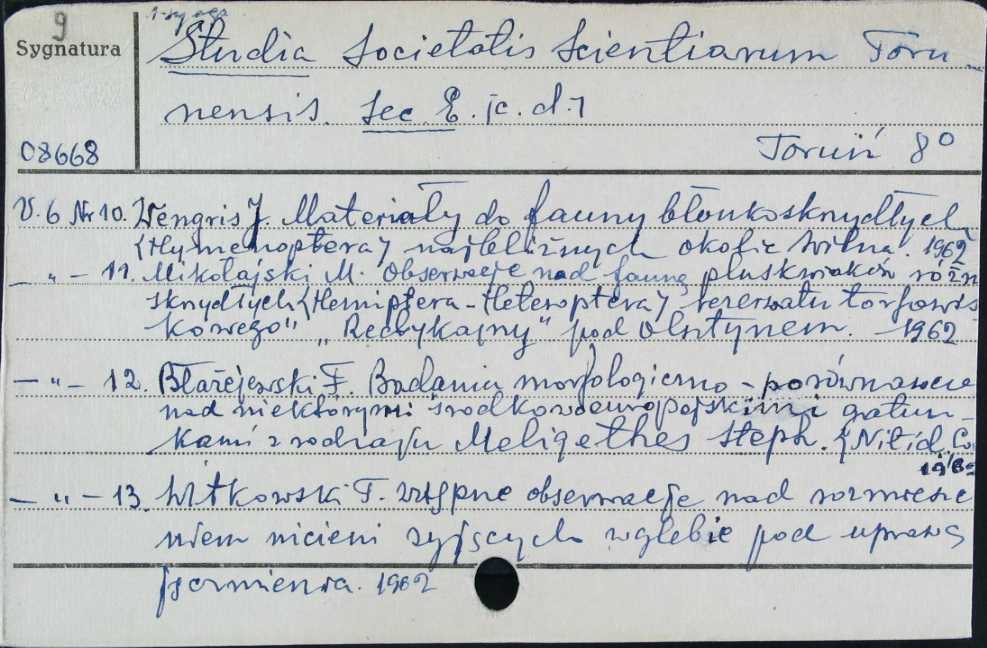 9
Sygnatura
Studia Societatis Scientiarum Toru-
nensis. Sec E. /c. d./
08668
Toruń 8°
V. 6 Nr 10. Wengris J. Materiały do fauny błonkoskrzydłych
(Hymenoptera) najbliższych okolic Wilna. 1962
— „ — 11. Mikołajski M. Obserwacje nad fauną pluskwiaków różn
skrzydłych (Hemiptera-Heteroptera) rezerwatu torfowis
kowego" „Redykajny" pod Olsztynem. — 1962
— „ — 12. Błażejewski F. Badania morfologiczno-porównawcze
nad niektórymi środkowoeuropejskimi gatun-
kami z rodzaju Meligethes Steph. (Nitid. Co
— „ — 13. Witkowski T. Wstępne obserwacje nad rozmieszcze
niem nicieni żyjących w glebie pod uprawą
jęczmienia. 1962